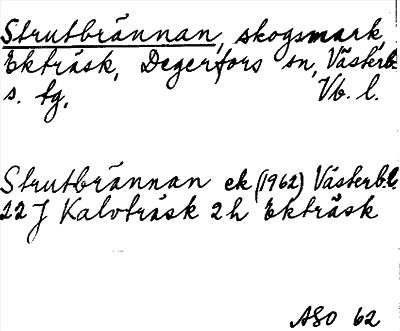 Strutbrännan, skogsmark,
Ekträsk, Degerfors sn, Västerb.
s. tg. Vb. l.
Strutbrännan ek (1962) Västerb.l.
22 J Kalvträsk 2h Ekträsk
ASO 62